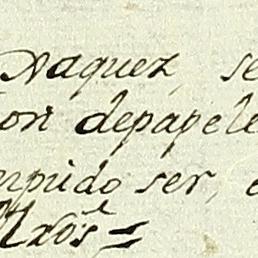 Naquez, se
on depapele
mpido ser, e